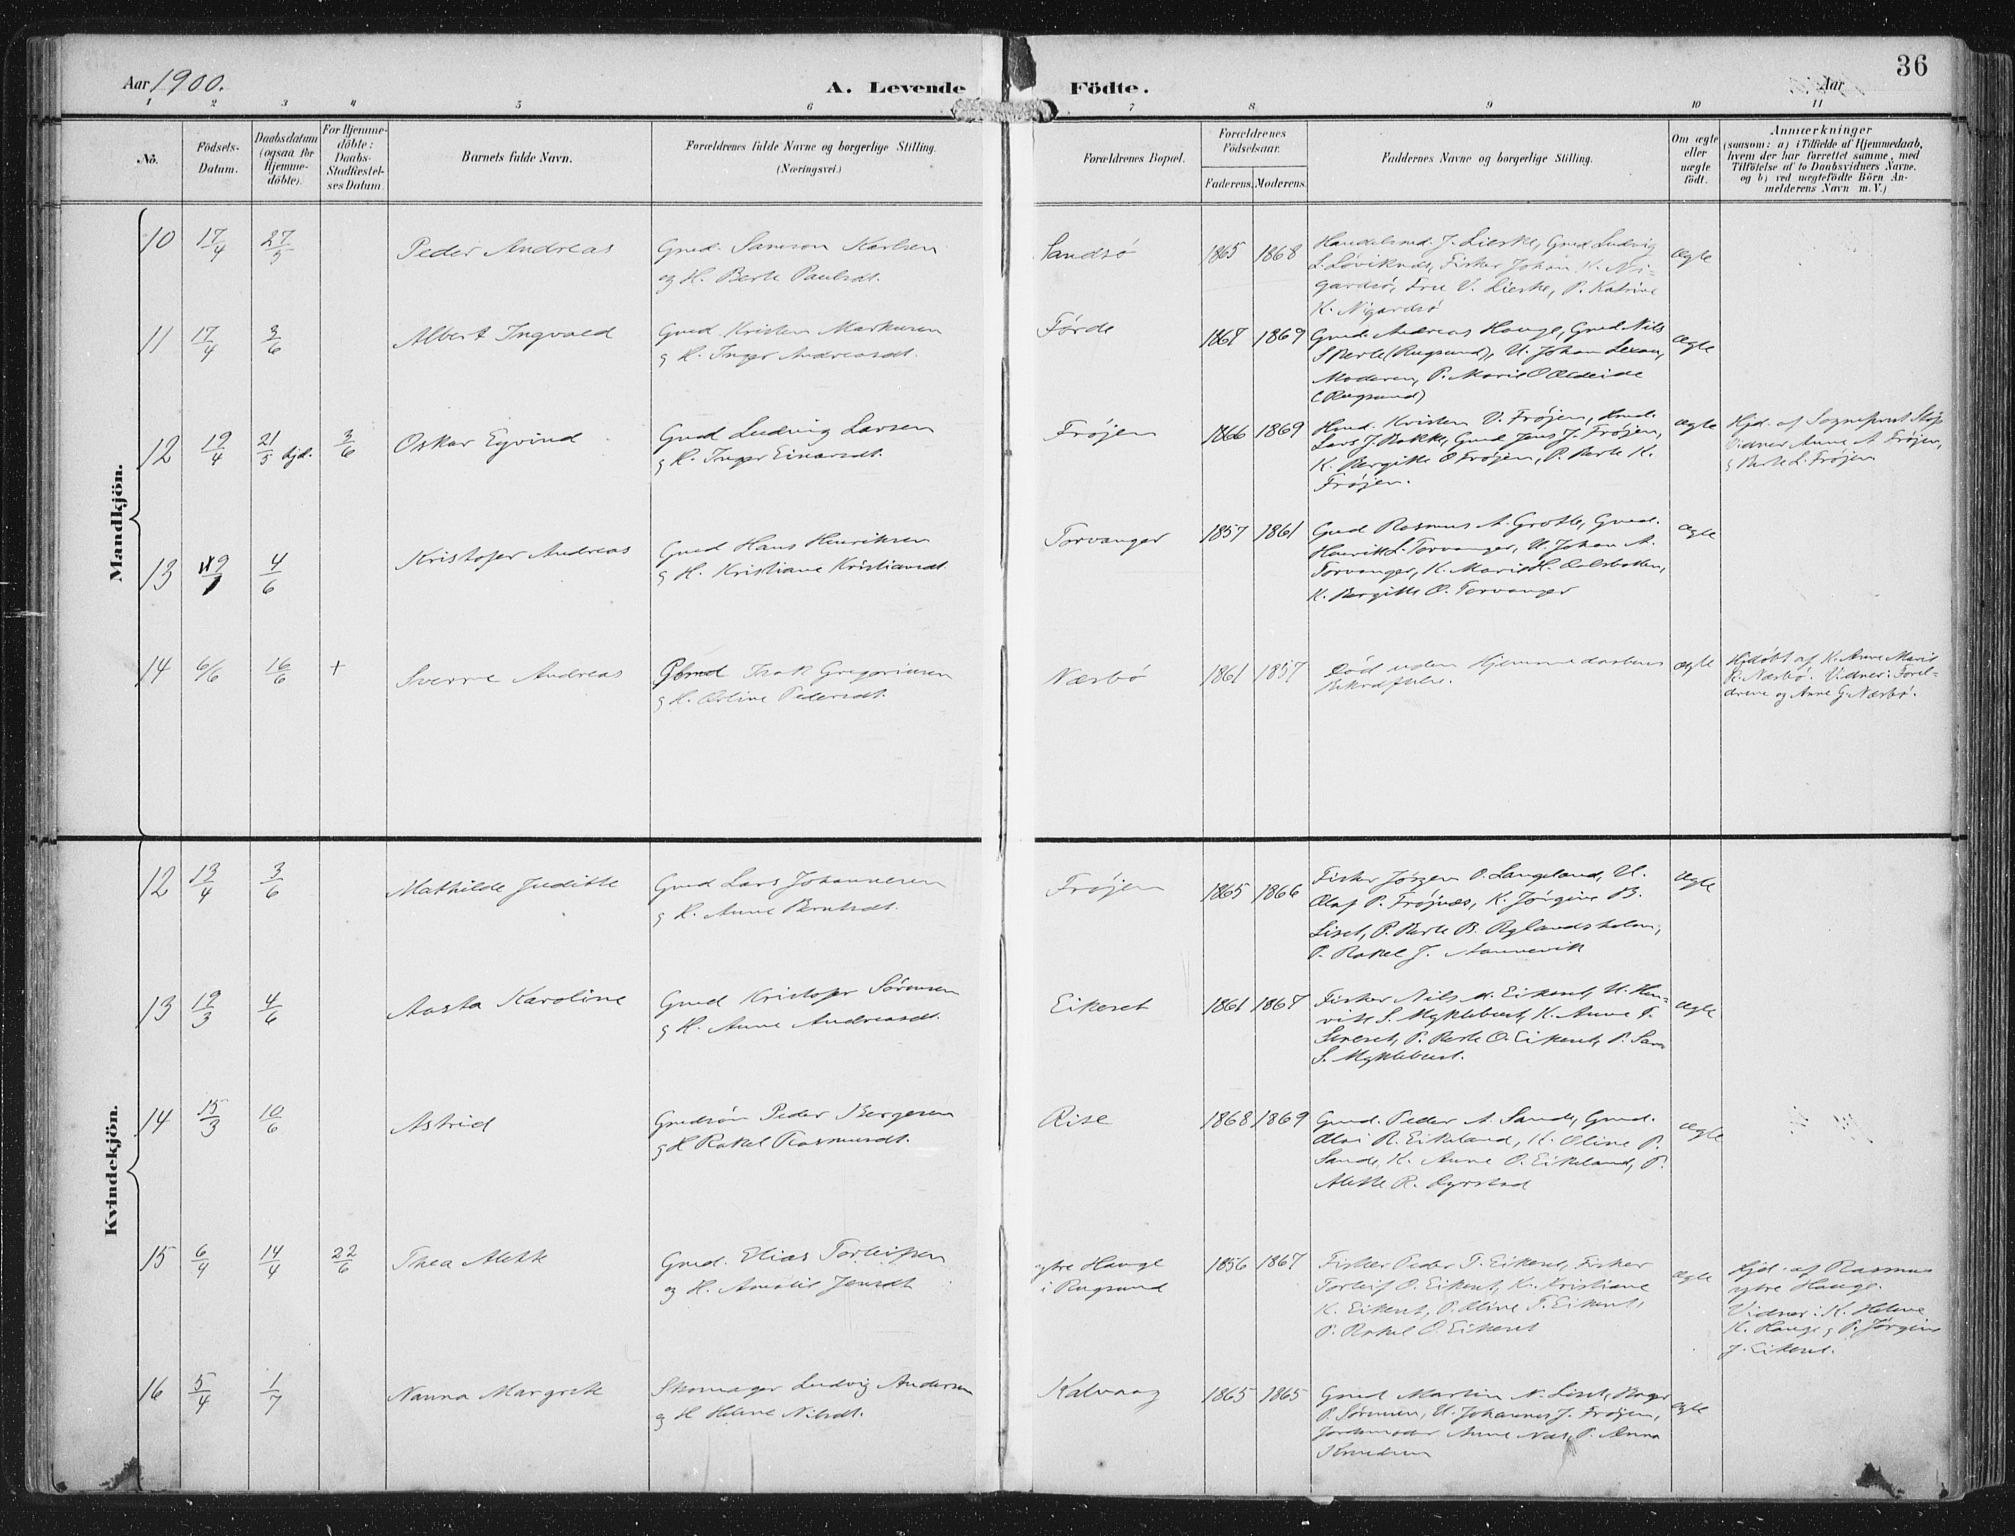 Aar 1900.
A. Levende Födte.
Aar
36
1 2 3 4 5 6 7 8 9 10 11
No.
Födsels-
Datum.
Daabsdatum
(ogsaa for
Hjemme-
döbte).
For Hjemme-
döbte:
Daabs-
Stadfæstel-
ses Datum.
Barnets fulde Navn.
Forældrenes fulde Navne og borgerlige Stilling.
(Næringsvei.)
Forældrenes Bopæl.
Forældrenes
Födselsaar.
Faderens. Moderens.
Faddernes Navne og borgerlige Stilling.
Om ægte
eller
uægte
födt.
Anmærkninger
(saasom: a) i Tilfælde af Hjemmedaab,
hvem der har forrettet samme, med
Tilföielse af to Daabsvidners Navne.
og b) ved uægtefödte Börn An-
melderens Navn m. V.)
Mandkjön.
10 17/4 27/5 Peder Andreas
Gmd. Samson Karlsen
og H. Berte Paulsdt.
Sandsö 1865 1868
Handelsmd. J. Lieske, Gmd Ludvig
Fisker Johan K. Ni-
gardsö, Fru V. Lieske, P. Katrine
K. Nigardsö
ægte
11 17/4 3/6 Albert Ingvald
Gmd. Kristen Markusen
g H. Inger Andreasdt.
Førde 1867 1869
Gmd. Andreas Hauge, Gmd Nils
S Berle (Rugsund), U. Johan
Moderen, P. Marie O Oldeide
(Rugsund)
ægte
12 19/4 21/5 hjd. 3/6 Oskar Eyvind
Gmd Ludvig Larsen
g H. Inger Einarsdt.
Frøjen 1866 1869
Hmd. Kristen V. Frøjen, Hmd.
Lars J. Bakke, Gmd Jens J. Frøjen,
K. Bergitte O Frøjen, P. Berte K.
Frøjen.
ægte
Hjd. af Sogneprest
Vidner Anne A. Frøjen,
g Berte L. Frøjen
13 4/6 Kristofer Andreas
Gmd Hans Henriksen
g H. Kristiane Kristiansdt.
Torvanger 1857 1861
Gmd Rasmus A. Grotle, Gmd.
Henrik L. Torvanger, U. Johan A.
Torvanger, K. Marie H.
K. Bergitte O. Torvanger
ægte
14 6/6 16/6 + Sverre Andreas
Isak Gregoriusen
g H. Oline Pedersdt.
Næsbö 1861 1857
Död uden Hjemmedaabens
Bekræftelse.
ægte
Hjdöbt af K. Anne Marie
K. Næsbö. Vidner: Forel-
drene og Anne G. Næsbö.
Kvindekjön.
12 13/4 3/6 Mathilde Juditte
Gmd Lars Johannesen
g H. Anne Berntsdt.
Frøjen 1865 1866
Fisker Jörgen O. Langeland, U.
Olaf P. Frøjnæs, K. Jörgine B.
Liset, P. Berte B. Rylandsholm,
P. Rakel J.
ægte
13 19/3 4/6 Aasta Karoline
Gmd Kristofer Sörensen
g H. Anne Andreasdt.
Eikeset 1861 1867
Fisker Nils M. Eikeset, U. Hen-
rik S. Myklebust, K. Anne T.
P. Berte O. Eikeset, P.
S. Myklebust.
ægte
14 15/3 10/6 Astrid
Gmdsön Peder Börgesen
g H Rakel Rasmusdt.
Rise 1868 1869
Gmd. Peder A. Sande, Gmd.
R. Eikeland, K. Oline P.
Sande, K. Anne O. Eikeland, P.
Alette R. Dyrstad
ægte
15 6/4 14/4 22/6 Thea Alette
Gmd. Elias Torleifsen
og H. Amalie Jensdt
ytre Hauge
i Rugsund
1856 1867
Fisker Peder T. Eikeset, Fisker
Torleif O. Eikeset, K. Kristiane
K. Eikeset, P. Oline T. Eikeset,
P. Rakel O. Eikeset
ægte
Hjd. af Rasmus
ytre Hauge.
Vidner: K. Helene
K. Hauge g P. Jörgine
J. Eikeset.
16 5/4 1/7 Nanna Margrete
Skomager Ludvig Andersen
og H Helene Nilsdt.
Kalvaag 1865 1865
Gmd Martin N. Liset,
P. Sörensen, U. Johannes J. Frøjen,
Jordmoder Anne Næs, P. Anna
Knudsen
ægte